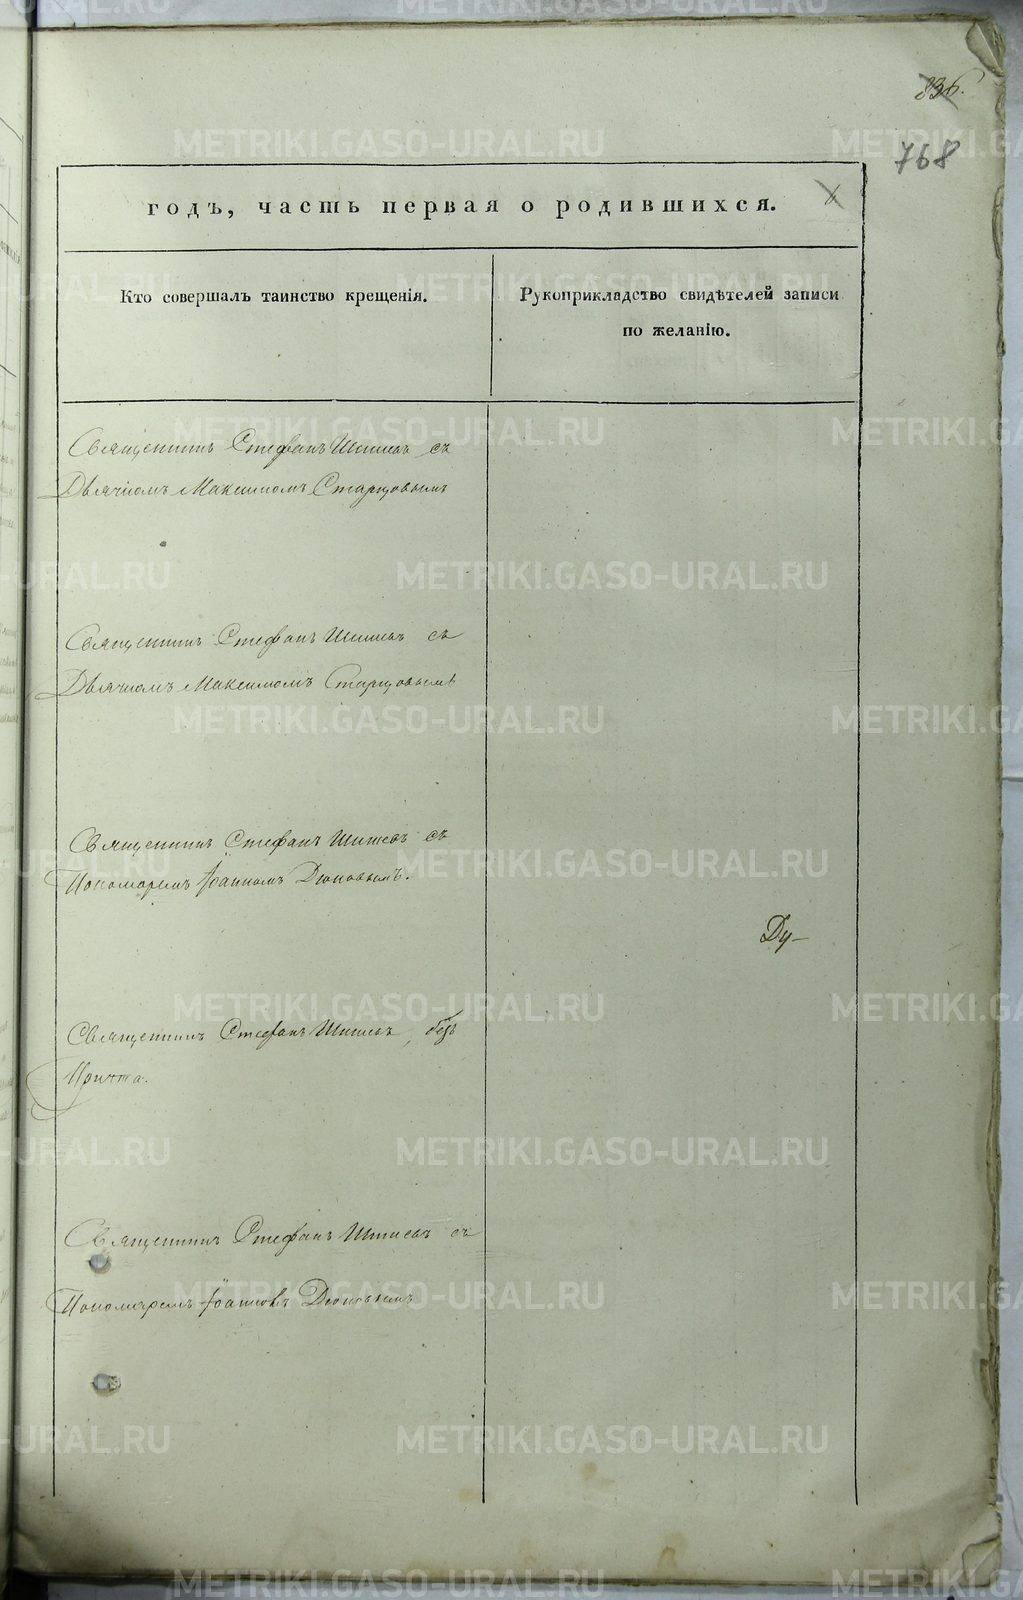 836.
768
годъ, часть первая о родившихся.
Кто совершалъ таинство крещенія.
Рукоприкладство свидѣтелей записи
по желанію.
Священникъ Стефанъ съ
Дьячкомъ Максимомъ Старцовымъ
Священникъ Стефанъ съ
Дьячкомъ Максимомъ Старцовымъ
Священникъ Стефанъ съ
Пономаремъ Іоанномъ
Ду-
Священникъ Стефанъ безъ
Причта.
Священникъ Стефанъ съ
Пономаремъ
METRIKI.GASO-URAL.RU